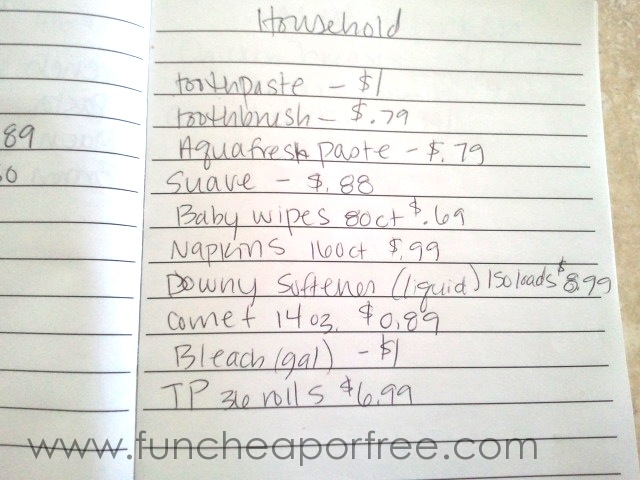 Household
toothpaste - $1
toothbrush - $.79
89
Aquafresh paste - $.79
50
Suave - $.88
Baby wipes 80ct $.69
Napkins 160ct $.99
Downy Softener (liquid) 150loads $8.99
Comet 14oz. $0.89
Bleach (gal) - $1
TP 36 rolls $6.99
www.funcheaporfree.com